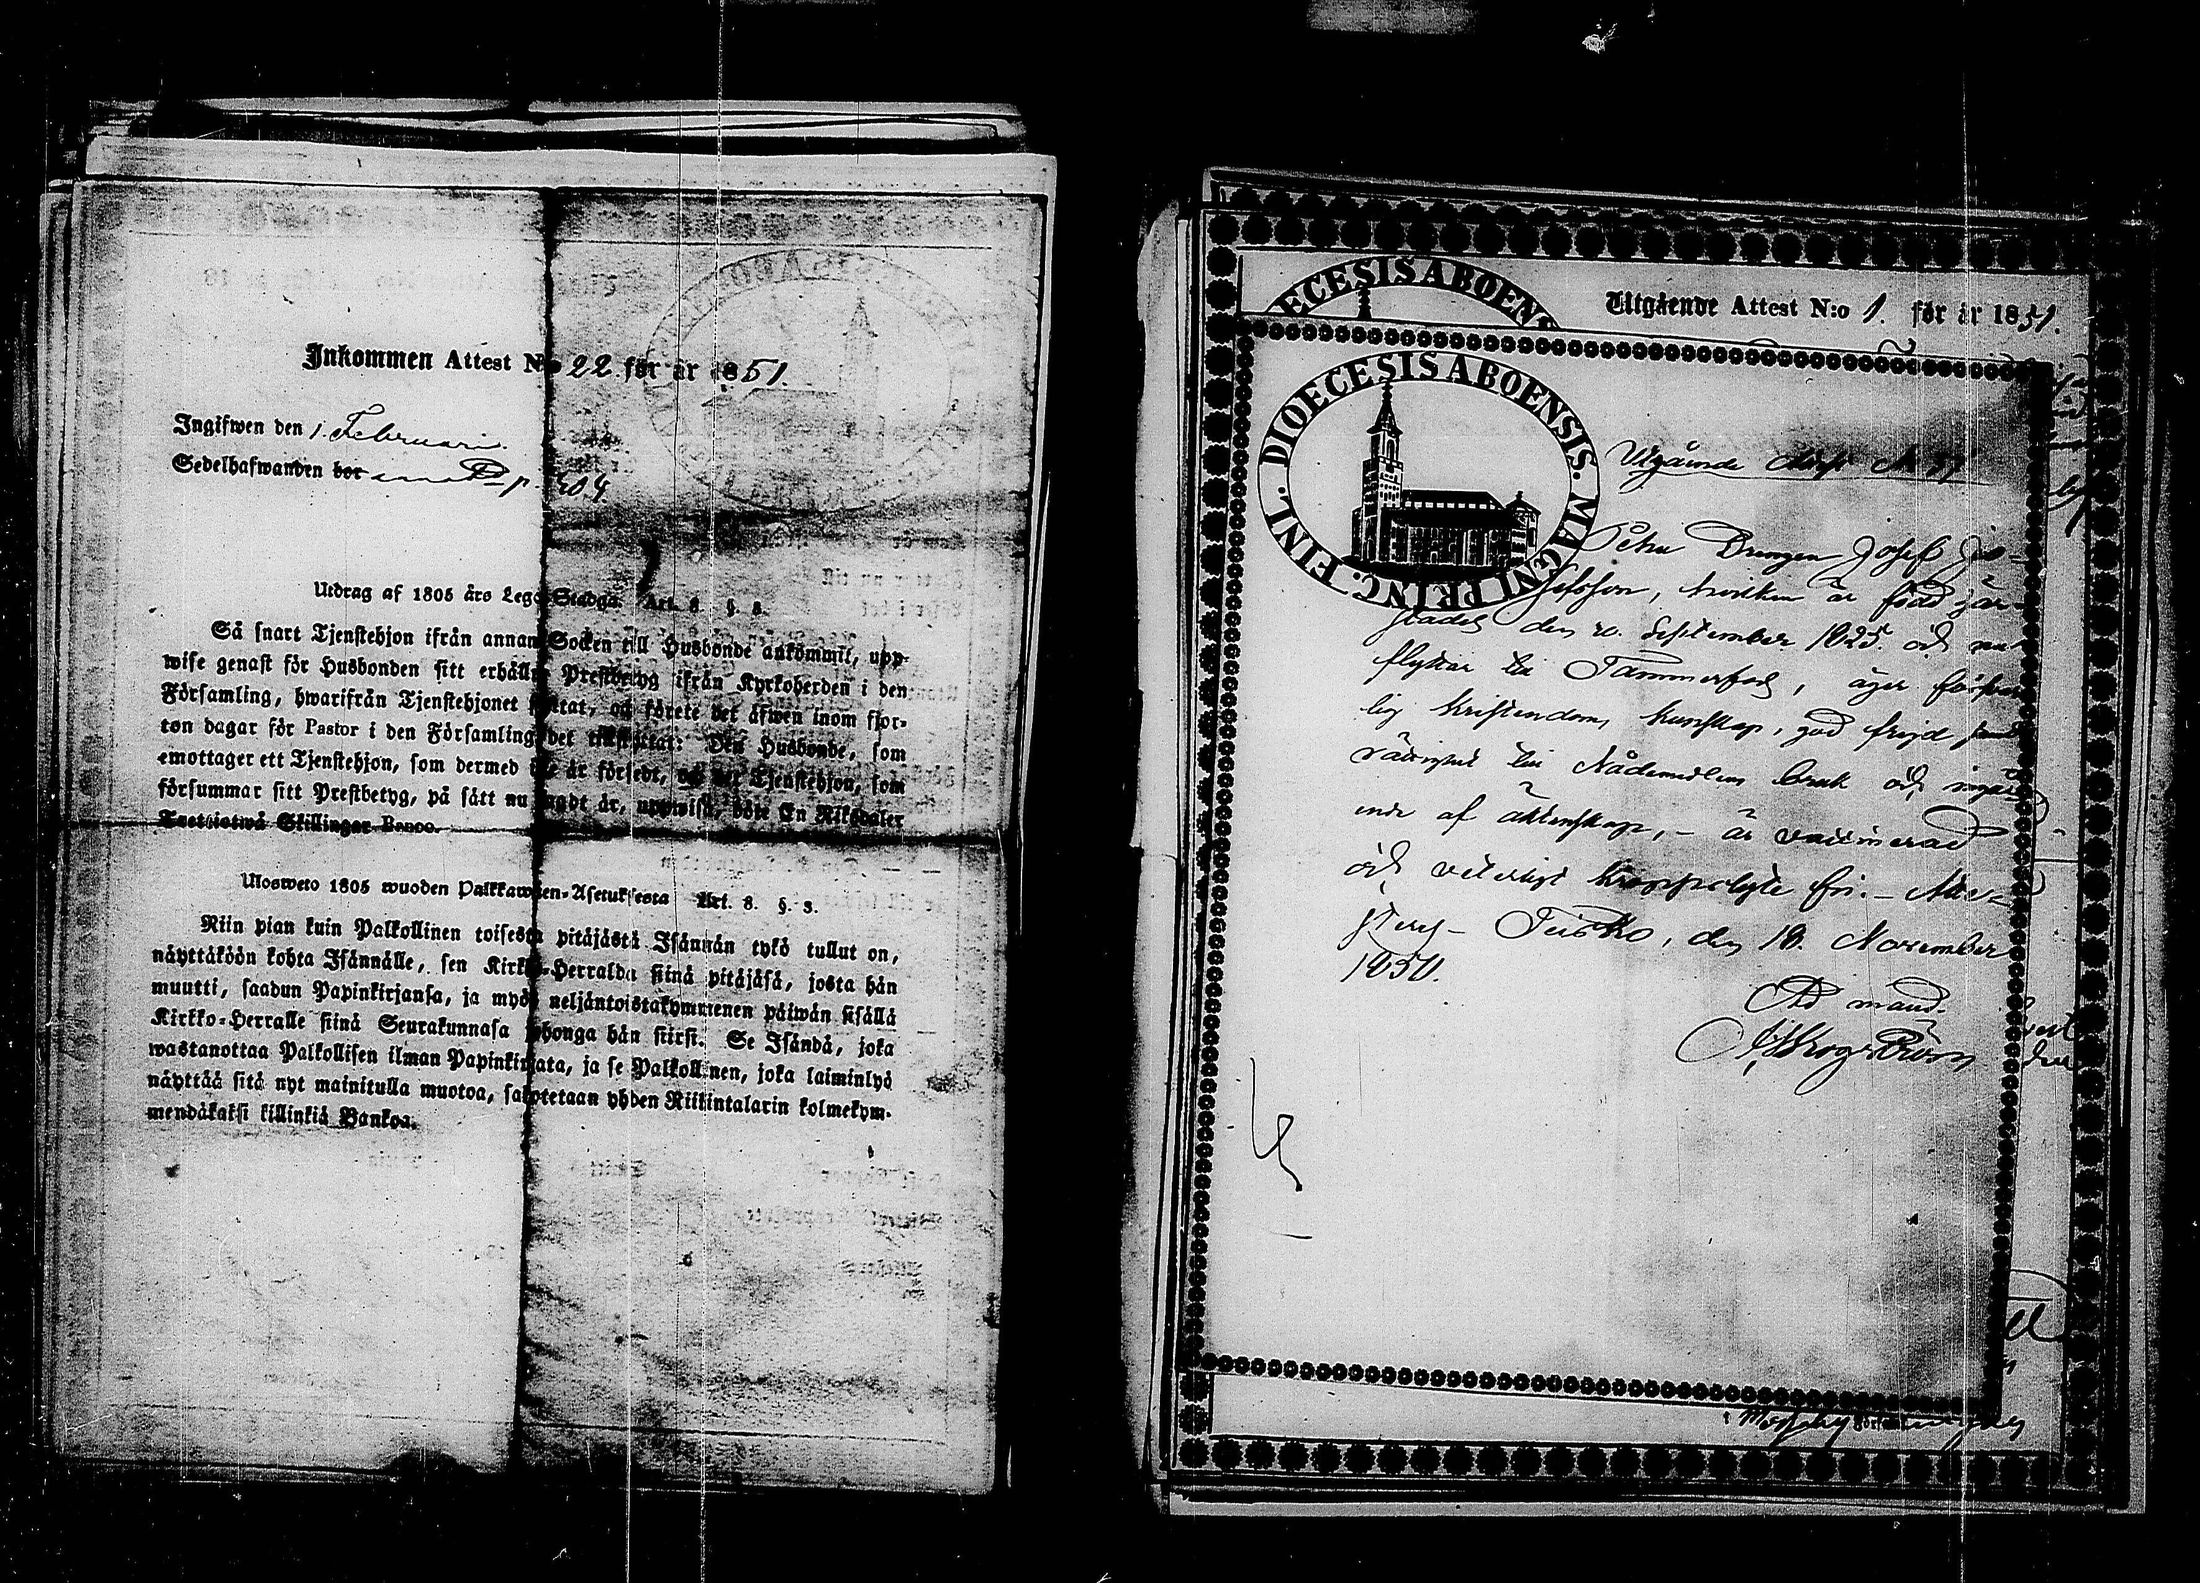 Inkommen Attest N:o 22 för år 1851.
Ingifwen den 1. Februari
Sedelhafwanden bor
Utdrag af 1805 års Lego-Stadga. Art. 8. §. 3.
Så snart Tjenstehjon ifrån annan Socken till Husbonde ankommit, upp-
wise genast för Husbonden sitt erhållne Prestbetyg ifrån Kyrkoherden i den
Församling, hwarifrån Tjenstehjonet flyttat, och förete det äfwen inom fjor-
ton dagar för Pastor i den Församling det tillflyttat: Den Husbonde, som
emottager ett Tjenstehjon, som dermed icke är försedt, och det Tjenstehjon, som
försummar sitt Prestbetyg, på sätt nu sagdt är, uppwisa, böte En Riksdaler
Trettiotwå Skillingar Banco.
Ulosweto 1805 wuoden Palkkawäen-Asetuksesta Art. 8. §. 3.
Niin pian kuin Palkollinen toisesta pitäjästä Isännän tykö tullut on,
näyttäköön kohta Isännälle, sen Kirkko-Herralda siinä pitäjäsä, josta hän
muutti, saadun Papinkirjansa, ja myös neljäntoistakymmenen päiwän sisällä
Kirkko-Herralle siinä Seurakunnasa johonga hän siirsi. Se Isändä, joka
wastanottaa Palkollisen ilman Papinkirjata, ja se Palkollinen, joka laiminlyö
näyttää sitä nyt mainitulla muotoa, sakotetaan yhden Riikintalarin kolmekym-
mendäkaksi killinkiä Bankoa.
DIOECESIS ABOENS
Utgående Attest N:o 1. för år 1851.
DIOECESIS ABOENSIS. MAGNI PRINC. FINL.
Utgående Attest No
Drengen Josef Jo-
sefsson, hvilken är född här-
städes den 20. September 1825. och nu
flyttar till Tammerfors, äger försvar-
lig kristendoms kunskap, god frejd samt
rättighet till Nådemedlens bruk och ingå-
ende af äktenskap, - är vaccinerad
och veterligt kroppslyte fri. - Atte-
steras - Teisko, den 18. November
1850.
Ad mand.